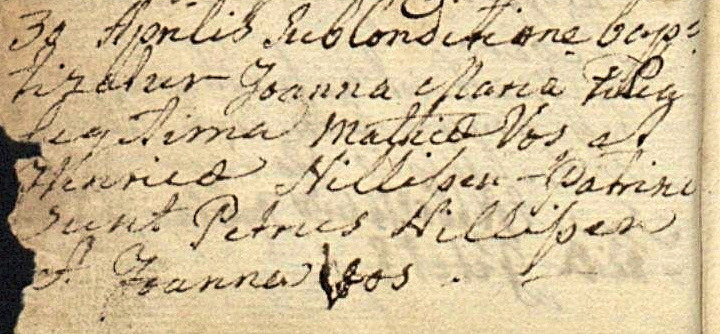 30 Aprilis sub Conditione bap=
tizatur Joanna Maria filia
legitima Mathiæ Vos et
Henricæ Hillissen Patrini
sunt Petrus Hillissen
et Joanna Vos.